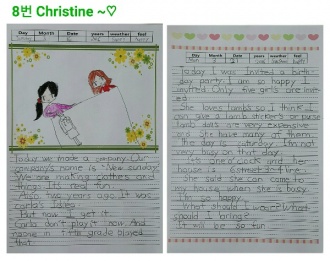 8번 Christine ~♡
Day Month Date years weather feel
Today we made a company. Our
company's name is "New sunway".
We are making clothes and
things. It's real fun.
And two years ago it was
Carla's idea.
But now I get it.
Carla don't play it now. And
now in 1, the grade played
that.
Day Month Date years weather feel
Today I was invited a birth-
day party. I am so happy I
invited. Only five girls are inve-
ted.
She loves lambs so I think I
can give a lamb stickers or purse
lamb dolls is very expensive
and She have many of them.
The day is saturday. I'm not
busy on that day.
It's one o'clock and her
house is
She said She can come to
my house when she is busy.
I'm so happy.
What should I wear? What
should I bring?
It will be so fun.